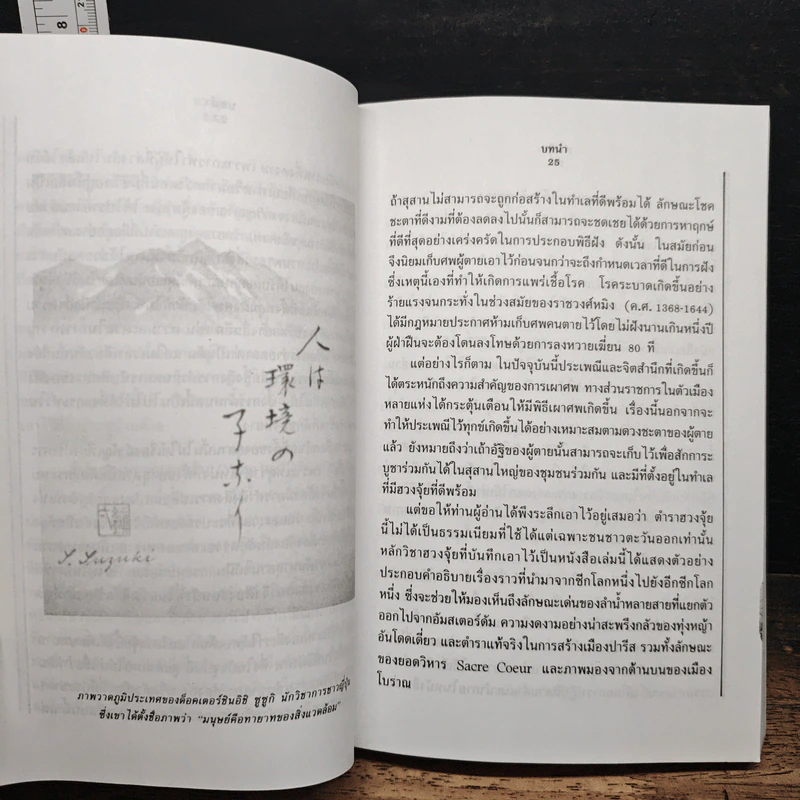 8
人は
環境の
子なり
S. Suzuki
ภาพวาดภูมิประเทศของด็อคเตอร์ชินอิชิ ซูซูกิ นักวิชาการชาวญี่ปุ่น
ซึ่งเขาได้ตั้งชื่อภาพว่า "มนุษย์คือทายาทของสิ่งแวดล้อม"
บทนำ
25
ถ้าสุสานไม่สามารถจะถูกก่อสร้างในทำเลที่ดีพร้อมได้ ลักษณะโชค
ชะตาที่ดีงามที่ต้องลดลงไปนั้นก็สามารถจะชดเชยได้ด้วยการหาฤกษ์
ที่ดีที่สุดอย่างเคร่งครัดในการประกอบพิธีฝัง ดังนั้น ในสมัยก่อน
จึงนิยมเก็บศพผู้ตายเอาไว้ก่อนจนกว่าจะถึงกำหนดเวลาที่ดีในการฝัง
ซึ่งเหตุนี้เองที่ทำให้เกิดการแพร่เชื้อโรค โรคระบาดเกิดขึ้นอย่าง
ร้ายแรงจนกระทั่งในช่วงสมัยของราชวงศ์หมิง (ค.ศ. 1368-1644)
ได้มีกฎหมายประกาศห้ามเก็บศพคนตายไว้โดยไม่ฝังนานเกินหนึ่งปี
ผู้ฝ่าฝืนจะต้องโดนลงโทษด้วยการลงหวายเฆี่ยน 80 ที
แต่อย่างไรก็ตาม ในปัจจุบันนี้ประเพณีและจิตสำนึกที่เกิดขึ้นก็
ได้ตระหนักถึงความสำคัญของการเผาศพ ทางส่วนราชการในตัวเมือง
หลายแห่งได้กระตุ้นเตือนให้มีพิธีเผาศพเกิดขึ้น เรื่องนี้นอกจากจะ
ทำให้ประเพณีไว้ทุกข์เกิดขึ้นได้อย่างเหมาะสมตามดวงชะตาของผู้ตาย
แล้ว ยังหมายถึงว่าเถ้าอัฐิของผู้ตายนั้นสามารถจะเก็บไว้เพื่อสักการะ
บูชาร่วมกันได้ในสุสานใหญ่ของชุมชนร่วมกัน และมีที่ตั้งอยู่ในทำเล
ที่มีฮวงจุ้ยที่ดีพร้อม
แต่ขอให้ท่านผู้อ่านได้พึงระลึกเอาไว้อยู่เสมอว่า ตำราฮวงจุ้ย
นี้ไม่ได้เป็นธรรมเนียมที่ใช้ได้แต่เฉพาะชนชาวตะวันออกเท่านั้น
หลักวิชาฮวงจุ้ยที่บันทึกเอาไว้เป็นหนังสือเล่มนี้ได้แสดงตัวอย่าง
ประกอบคำอธิบายเรื่องราวที่นำมาจากซีกโลกหนึ่งไปยังอีกซีกโลก
หนึ่ง ซึ่งจะช่วยให้มองเห็นถึงลักษณะเด่นของลำน้ำหลายสายที่แยกตัว
ออกไปจากอัมสเตอร์ดัม ความงดงามอย่างน่าสะพรึงกลัวของทุ่งหญ้า
อันโดดเดี่ยว และตำราแท้จริงในการสร้างเมืองปารีส รวมทั้งลักษณะ
ของยอดวิหาร Sacre Coeur และภาพมองจากด้านบนของเมือง
โบราณ